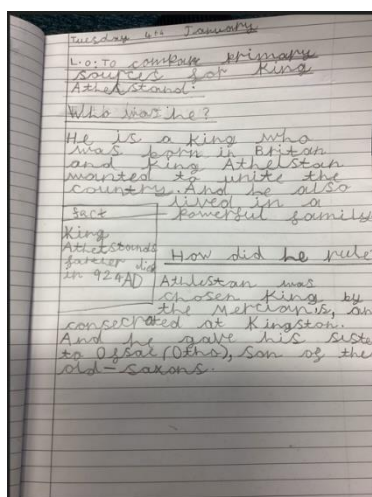 Tuesday 4th January
L.O: To compare primary
sources for King
Athelstand:
Who was he?
He is a king who
was born in Britan
and King Athelstan
wanted to unite the
country. And he also
lived in a
powerful family
fact
King
Athelstands
farther did
in 924AD
How did he rule
Athlestan was
chosen King by
the Mercians, an
consecrated at Kingston.
And he gave his siste
to Ofsae (Otho), son of the
old-saxons.